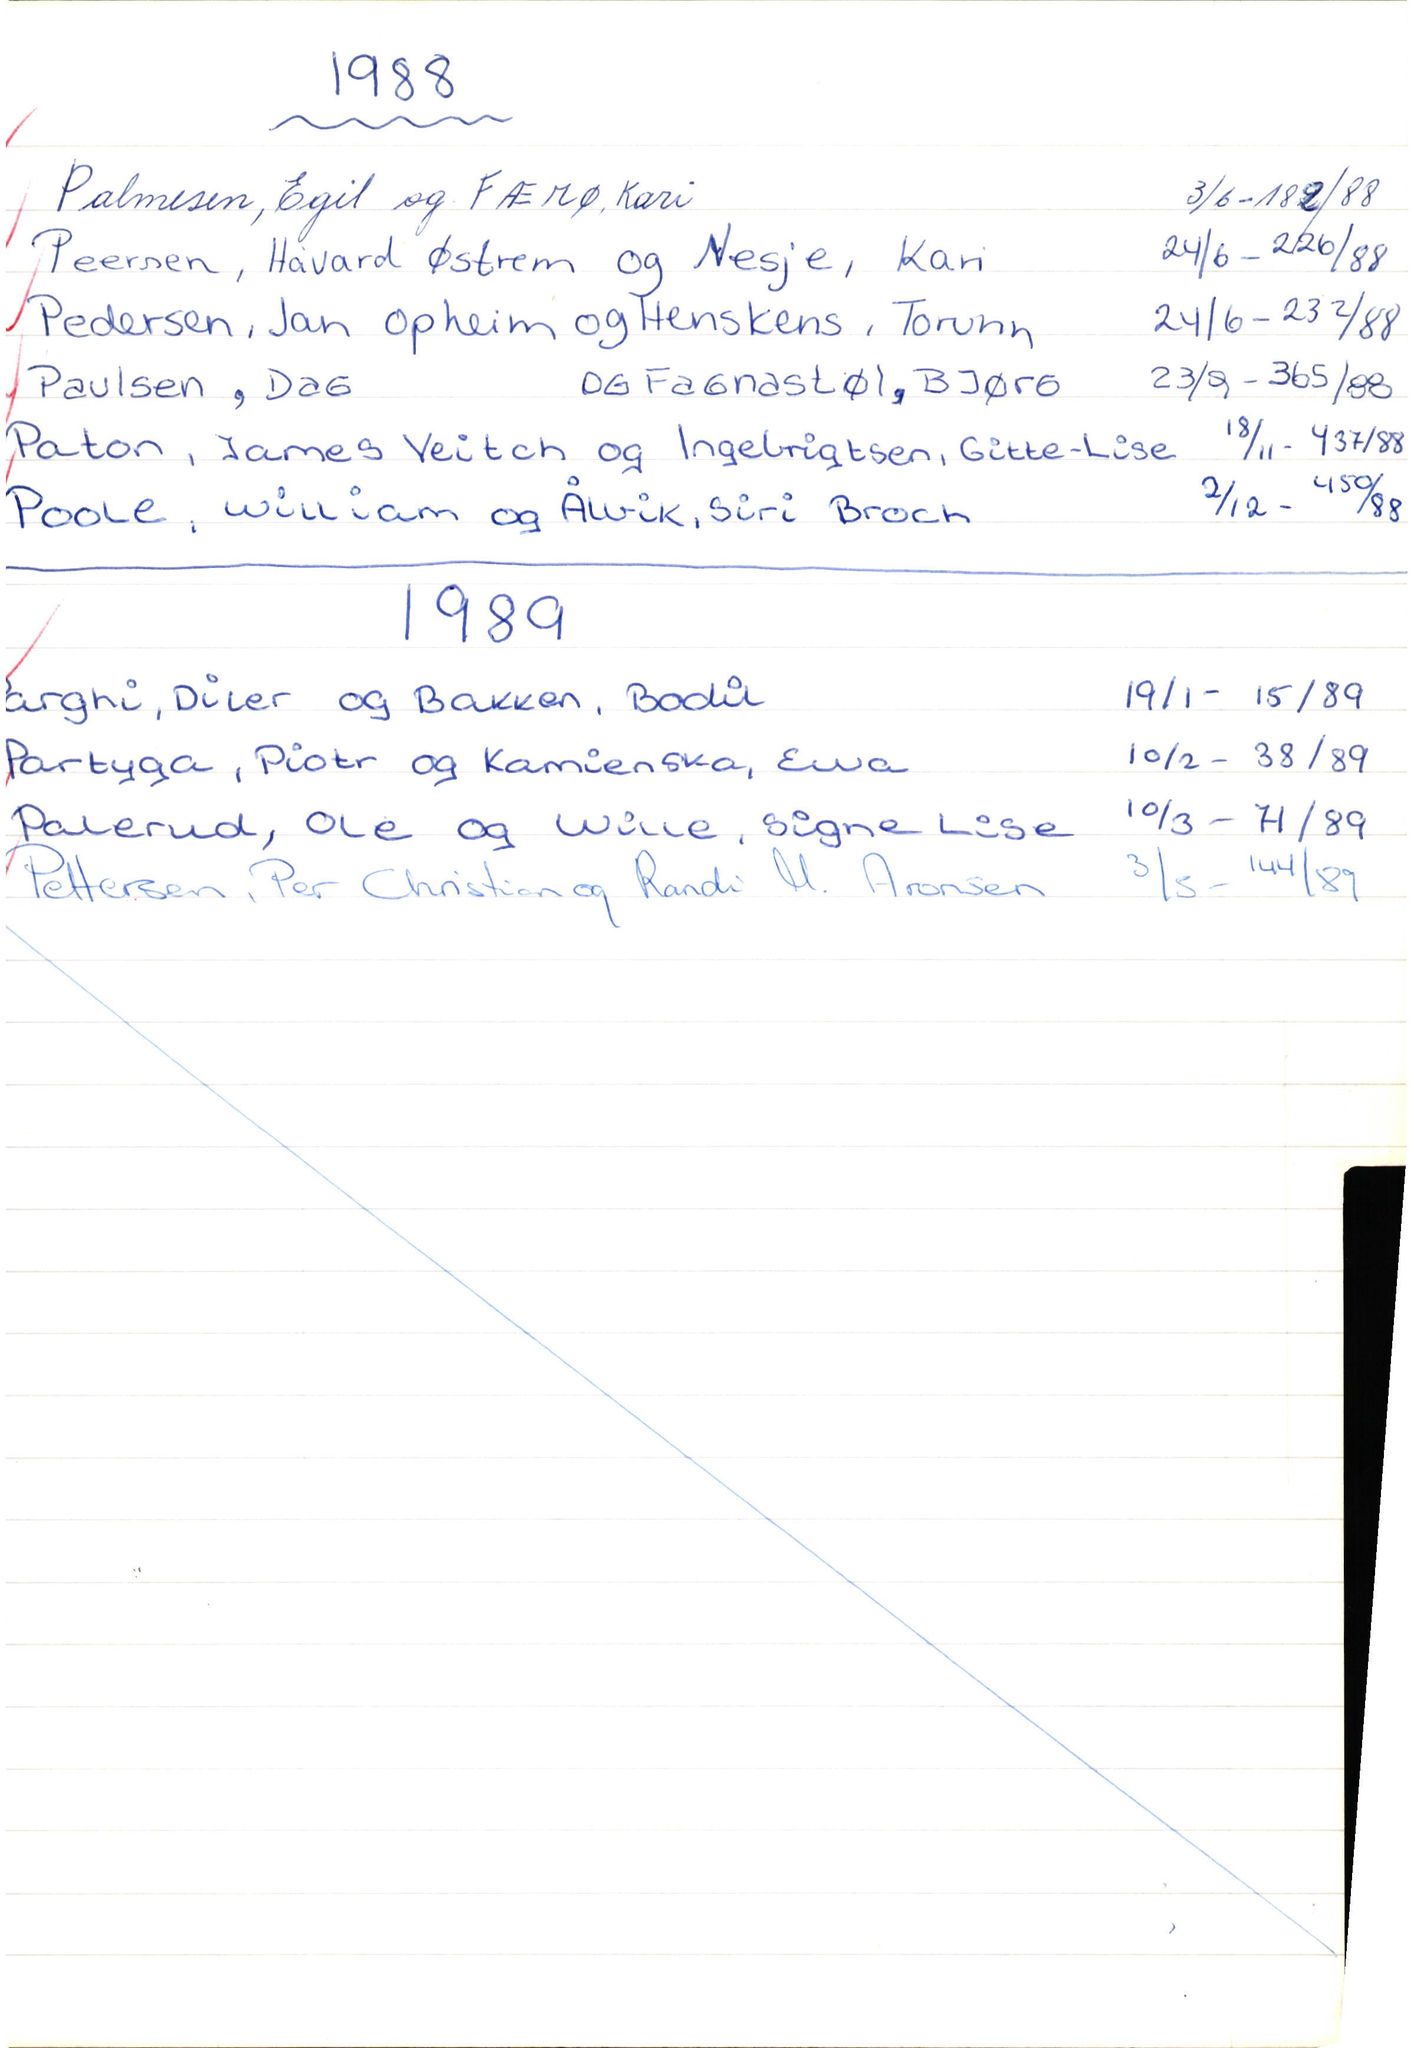 1988
Palmesen, Egil og FÆRØ, Kari 3/6-182/88
Peersen, Håvard Østrem og Nesje, Kari 24/6-226/88
Pedersen, Jan Opheim og Henskens, Torunn 24/6-232/88
Paulsen, Dag og Fagnastøl, Bjørg 23/9-365/88
Paton, James Veitch og Ingebrigtsen, Gitte-Lise 18/11-437/88
Poole, William og Ålvik, Siri Broch 2/12-450/88
1989
arghi, Diler og Bakken, Bodil 19/1-15/89
Partyga, Piotr og Kamienska, Ewa 10/2-38/89
Palerud, Ole og Wille, Signe Lise 10/3-71/89
Pettersen, Per Christian og Randi M. Aronsen 3/5-144/89